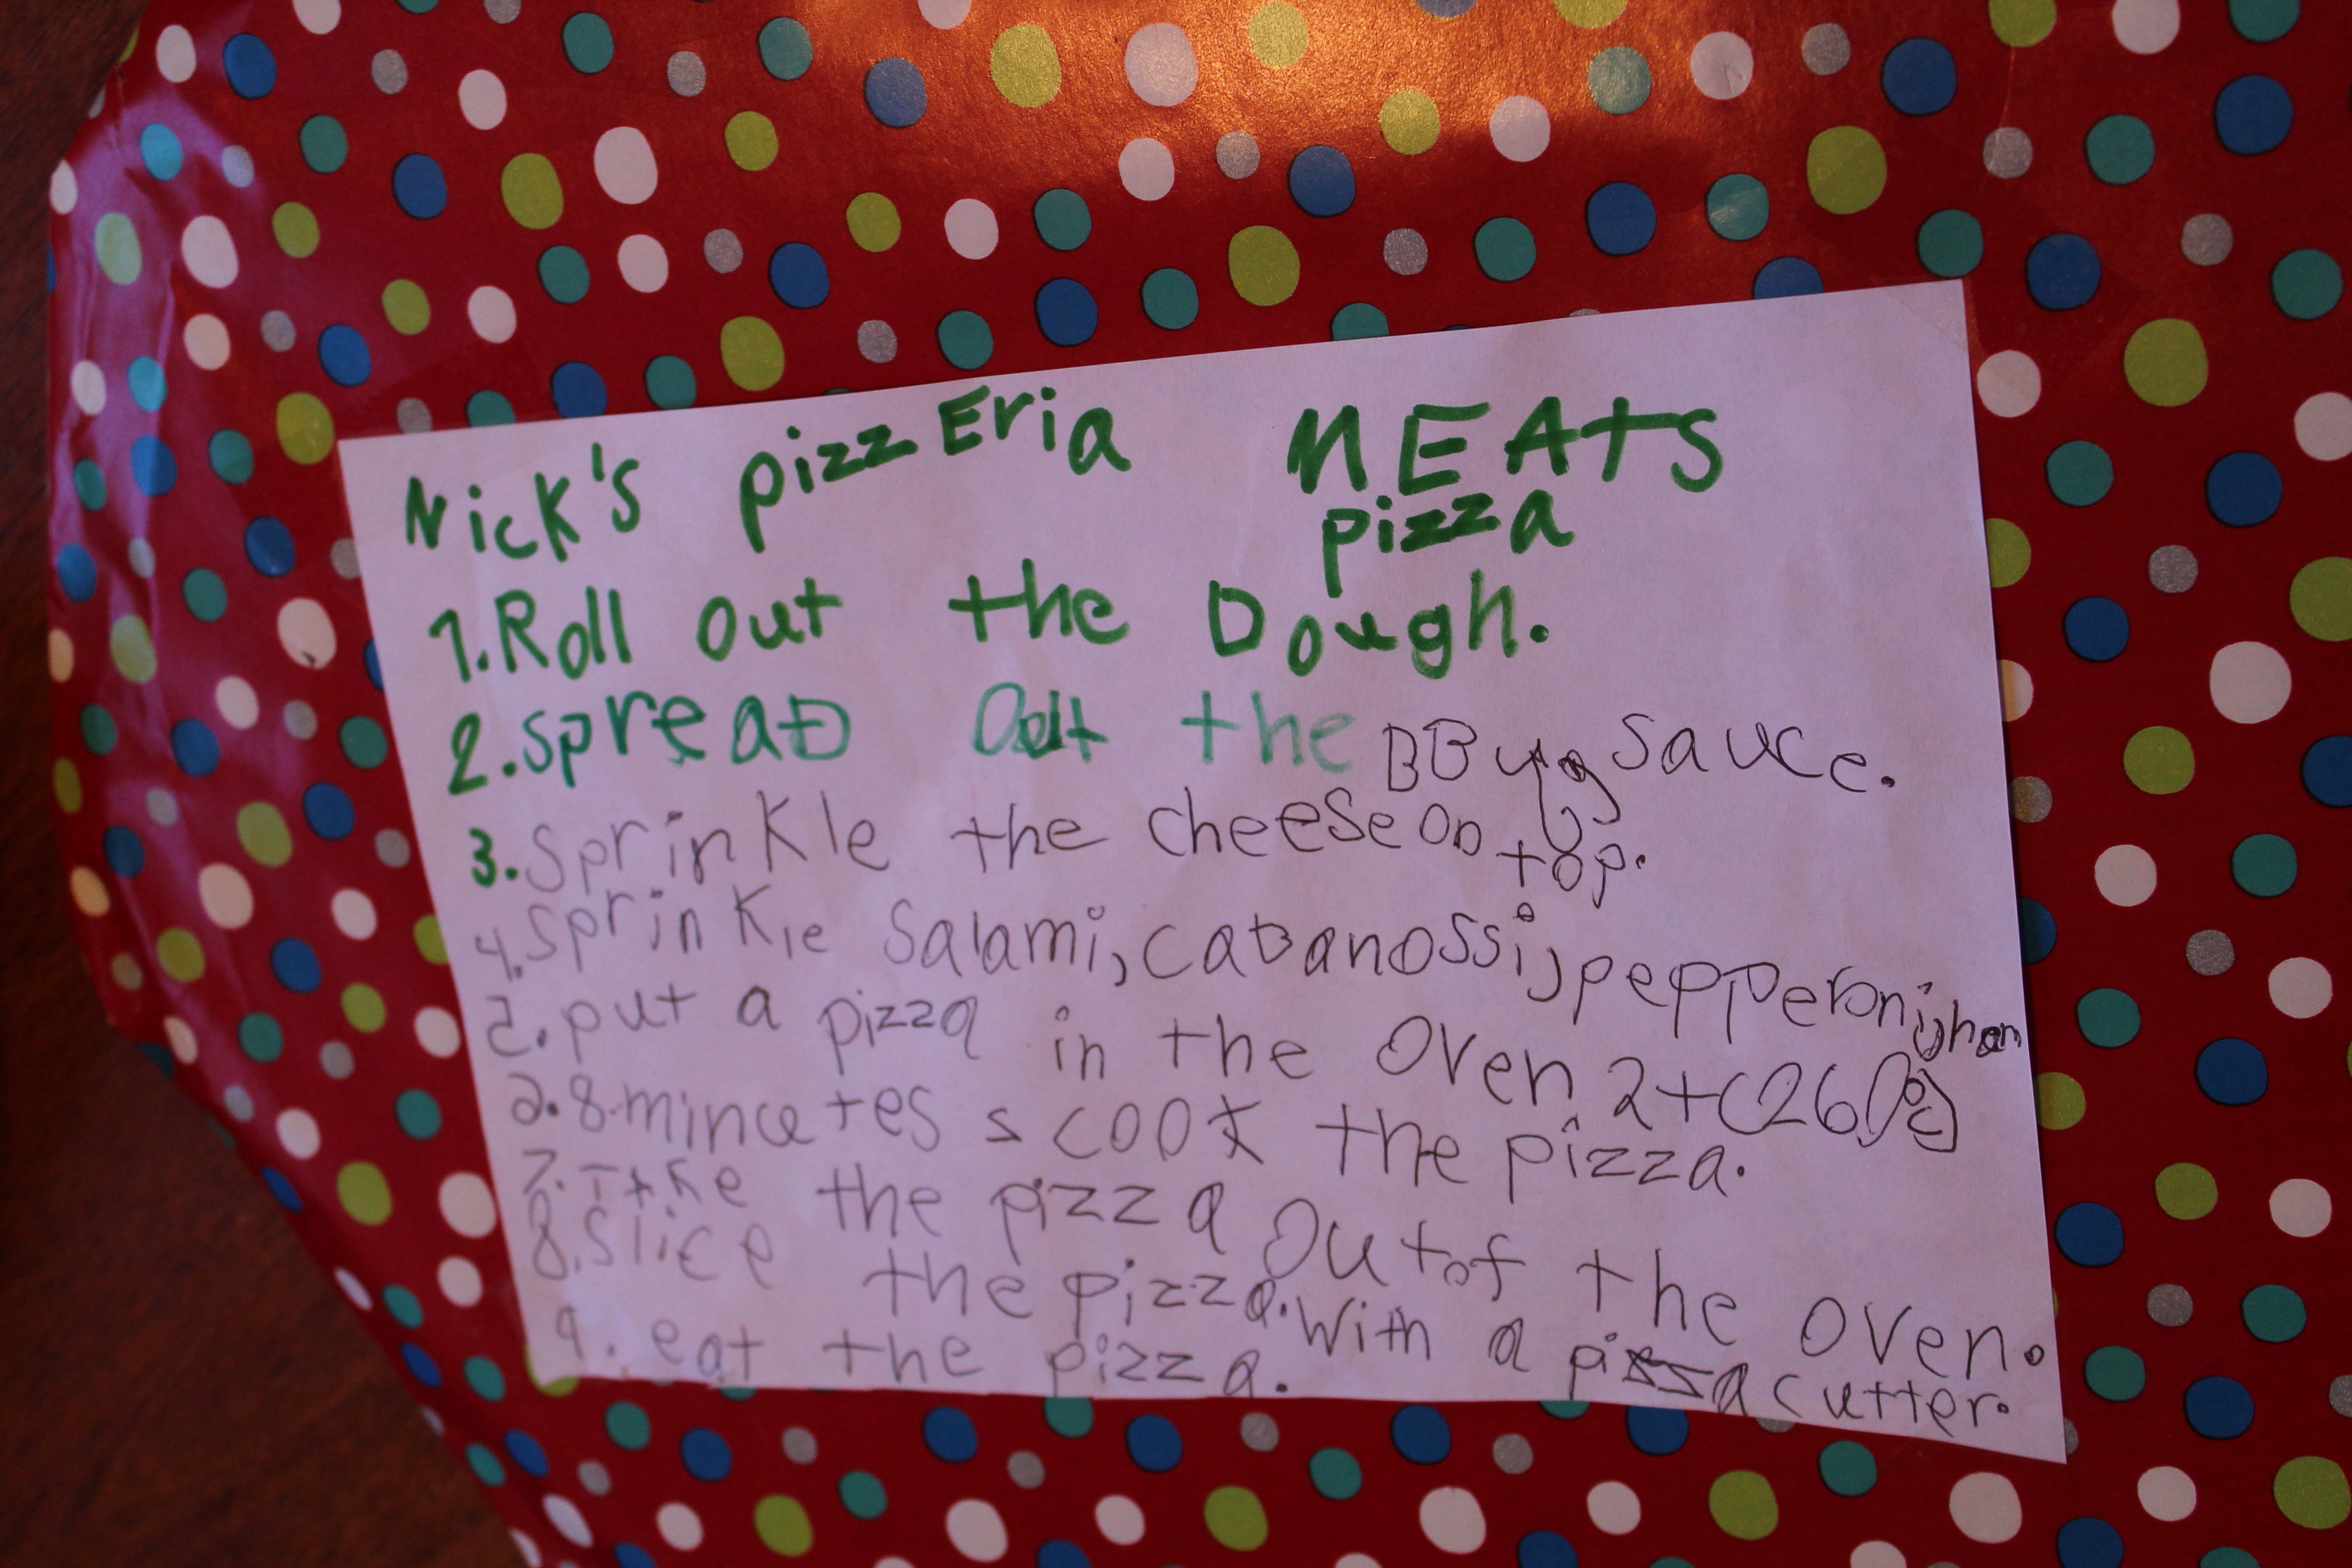 Nick's pizzEria MEATS
pizza
1. Roll out the Dough.
2. spreaD Out the BBq sauce.
3. Sprinkle the cheese on top.
4. sprinkle Salami, cabanossi, pepperoni, ham
5. put a pizza in the oven 2+(260°c)
8 minutes cook the pizza.
7. Take the pizza out of the oven.
8. Slice the pizza. With a pizza cutter.
9. eat the pizza.